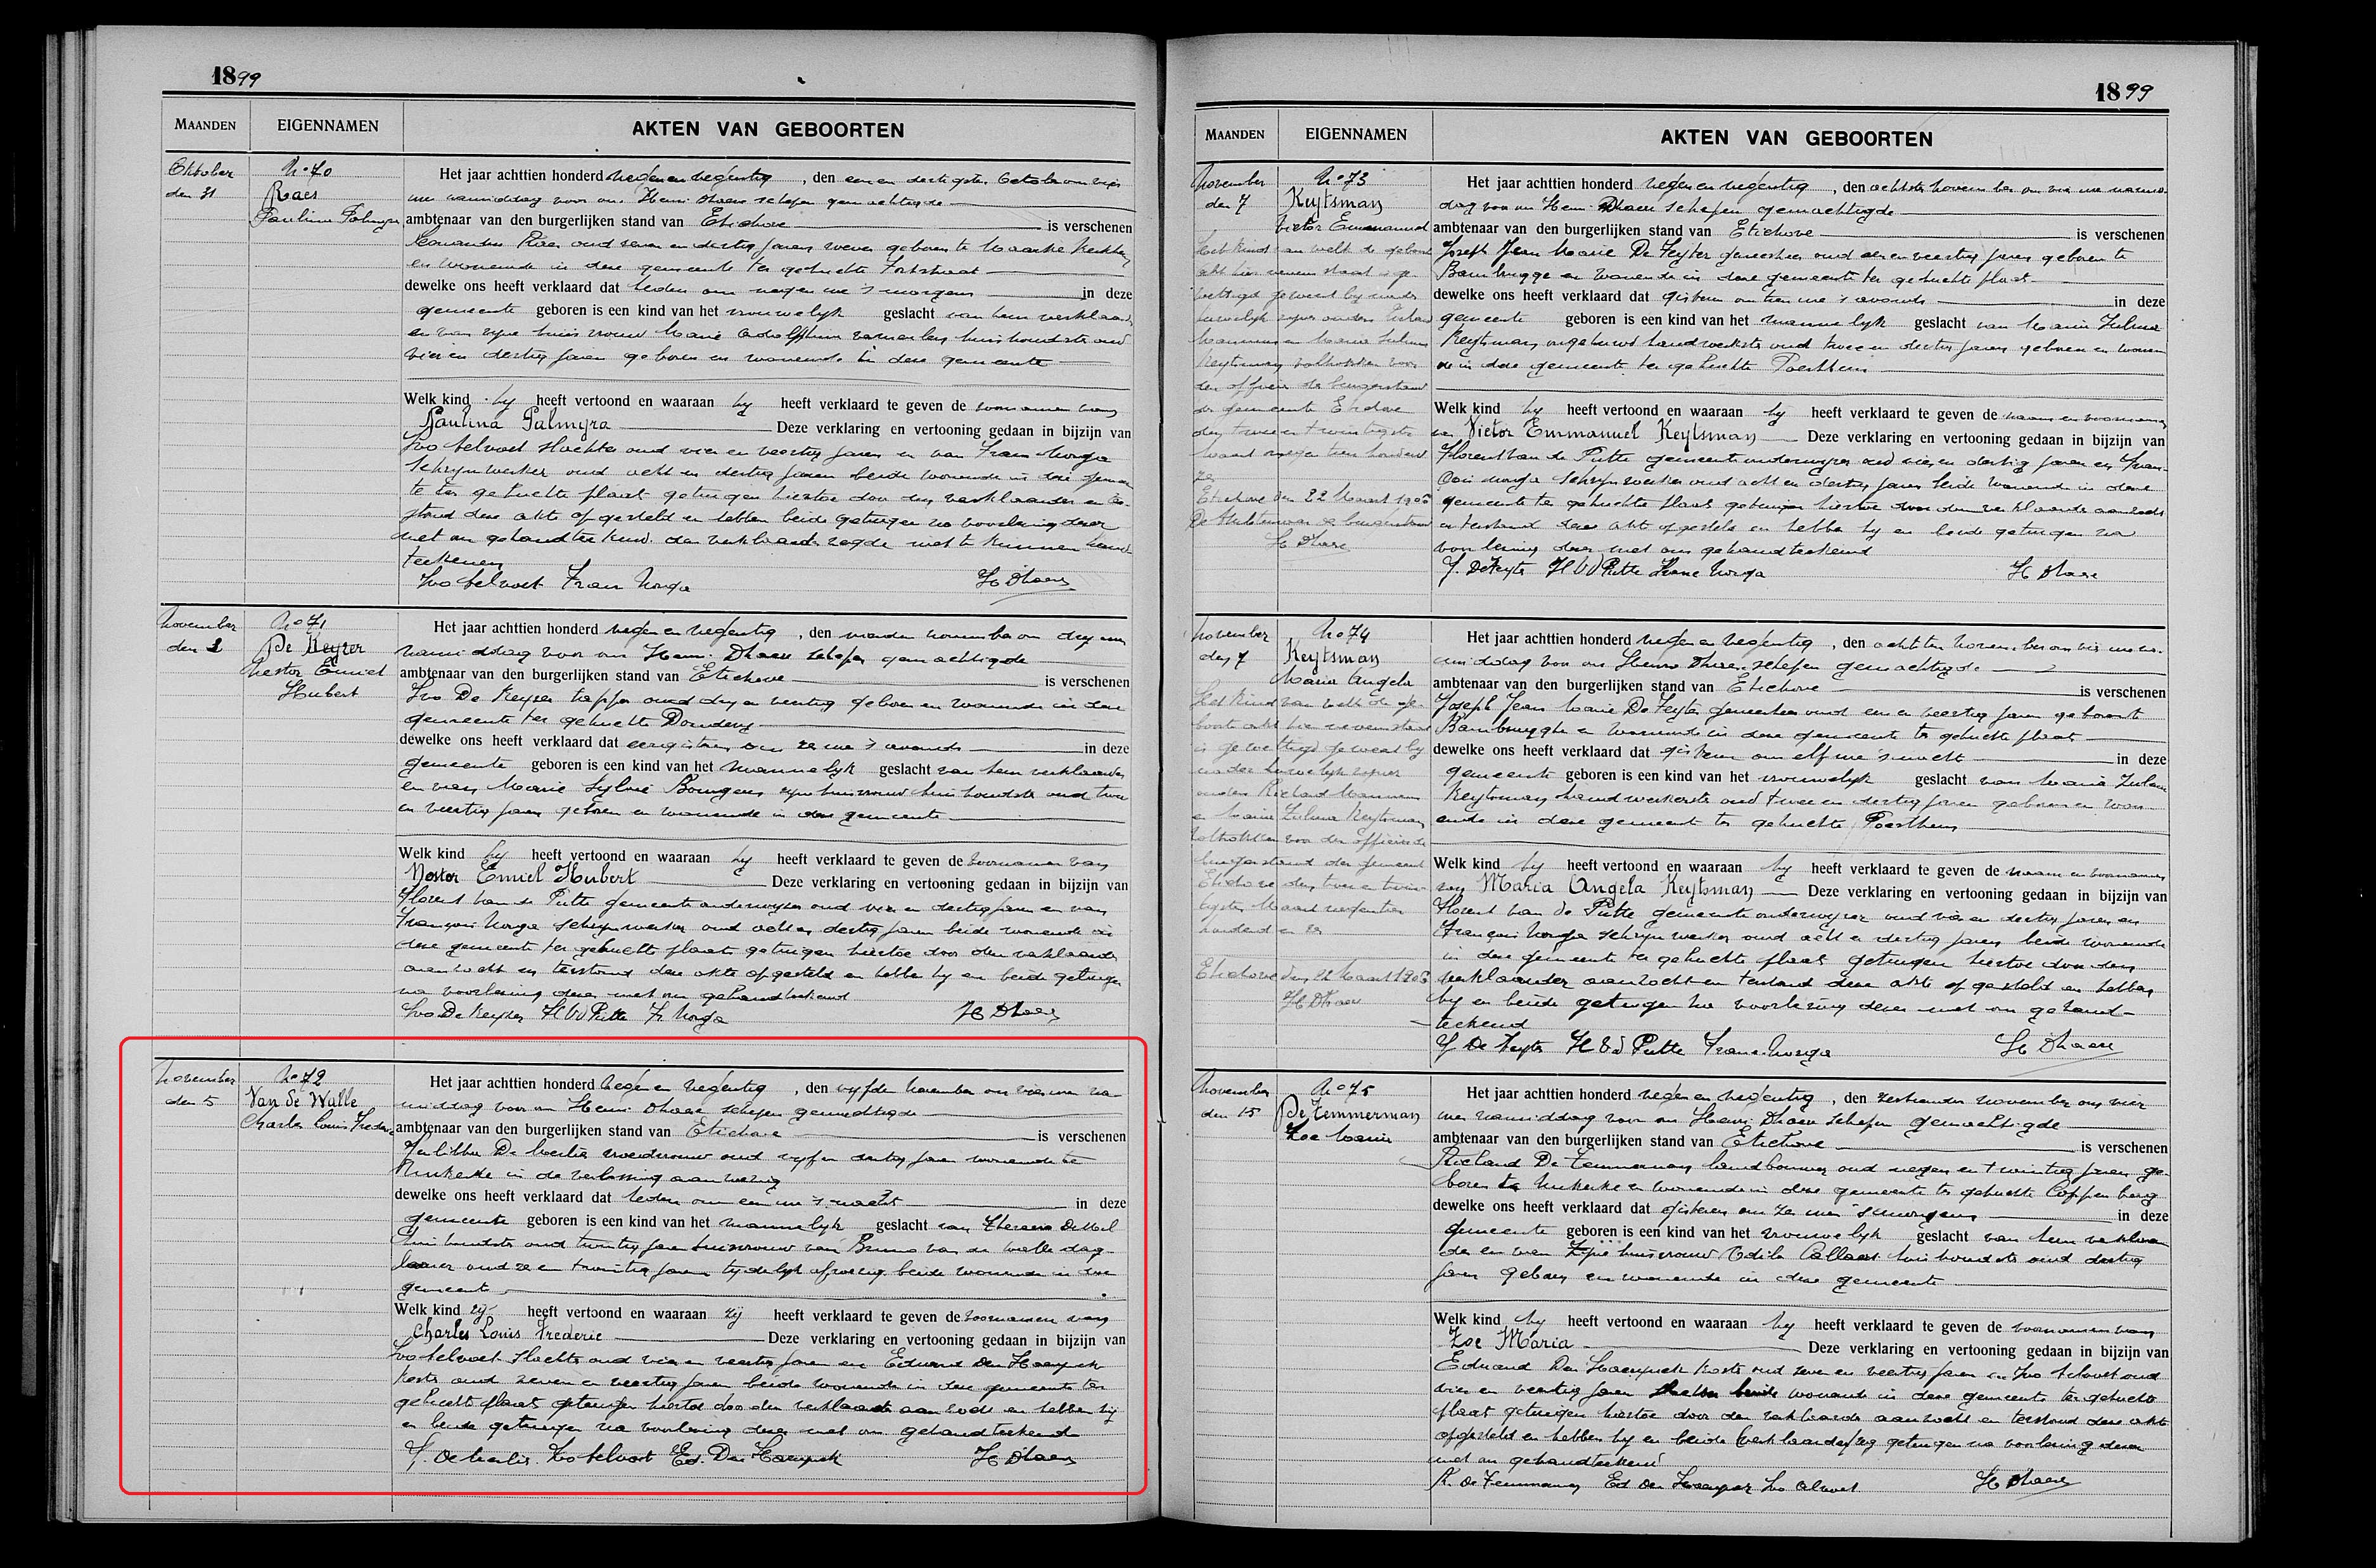 1899
MAANDEN EIGENNAMEN AKTEN VAN GEBOORTEN
Oktober
den 31
No 70
Raes
Paulina Palmyra
Het jaar achttien honderd negen en negentig, den een en dertigste October om vier
ure namiddag voor ons Henri Dhaere schepen gemachtigde
ambtenaar van den burgerlijken stand van Etichove is verschenen
Raes oud zeven en dertig jaren wever geboren te Maarke Kerkhem
en wonende in deze gemeente ter gehuchte
dewelke ons heeft verklaard dat heden om negen ure 's morgens in deze
gemeente geboren is een kind van het vrouwelijk geslacht van hem verklaarder
en van zijne huisvrouw Marie huishoudster oud
vier en dertig jaren geboren en wonende in deze gemeente
Welk kind hy heeft vertoond en waaraan hy heeft verklaard te geven de voornamen van
Paulina Palmyra Deze verklaring en vertooning gedaan in bijzijn van
Ivo Selvoet slachter oud vier en veertig jaren en van Frans Norga
schrijnwerker oud acht en dertig jaren beide wonende in deze gemeen
te ter gehuchte plaats getuigen hiertoe door den verklaarder en ter
stond deze akte opgesteld en hebben beide getuigen na voorlezing dezer
met ons gehandteekend. den verklaarder zegde niet te kunnen hand
teekenen
Ivo Selvoet Frans Norga H Dhaere
November
den 2
No 71
De Keyzer
Nestor Emiel
Hubert
Het jaar achttien honderd negen en negentig, den november om dry ure
namiddag voor ons Henri Dhaere schepen gemachtigde
ambtenaar van den burgerlijken stand van Etichove is verschenen
Ivo De Keyzer oud dry en veertig geboren en wonende in deze
gemeente ter gehuchte Donderij
dewelke ons heeft verklaard dat eergisteren om ze ure 's avonds in deze
gemeente geboren is een kind van het mannelyk geslacht van hem verklaarder
en van Marie Sylvie zyne huisvrouw huishoudster oud twee
en veertig jaren geboren en wonende in deze gemeente
Welk kind hy heeft vertoond en waaraan hy heeft verklaard te geven de voornamen van
Nestor Emiel Hubert Deze verklaring en vertooning gedaan in bijzijn van
Florent Van de Putte gemeente onderwyzer oud vier en dertig jaren en van
François Norga schrynwerker oud acht en dertig jaren beide wonende in
deze gemeente ter gehuchte plaats getuigen hiertoe door den verklaarder
aanzocht en terstond deze akte opgesteld en hebben hy en beide getuigen
na voorlezing dezer met ons gehandteekend
Ivo De Keyzer Fl V d Putte Fr Norga H Dhaere
November
den 5
No 72
Van de Walle
Charles Louis Frederic
Het jaar achttien honderd negen en negentig, den vyfde November om vier ure na
middag voor ons Henri Dhaere schepen gemachtigde
ambtenaar van den burgerlijken stand van Etichove is verschenen
De Meulier vroedvrouw oud vyf en dertig jaren wonende te
Nukerke in de verlossing aanwezig
dewelke ons heeft verklaard dat heden om een ure 's nachts in deze
gemeente geboren is een kind van het mannelyk geslacht van
huishoudster oud twintig jaren huisvrouw van Bruno Van de Walle dag
looner oud ze en twintig jaren tydelyk afwezig beide wonende in deze
gemeente
Welk kind zy heeft vertoond en waaraan zij heeft verklaard te geven de voornamen van
Charles Louis Frederic Deze verklaring en vertooning gedaan in bijzijn van
Ivo Selvoet slachter oud vier en veertig jaren en Eduard Den Haerynck
koster oud zeven en veertig jaren beide wonende in deze gemeente ter
gehuchte plaats getuigen hiertoe door den verklaarder aanzocht en hebben zy
en beide getuigen na voorlezing dezer met ons gehandteekend
Ivo Selvoet Ed. Den Haerynck H Dhaere
1899
MAANDEN EIGENNAMEN AKTEN VAN GEBOORTEN
November
den 7
No 73
Keytsman
Victor Emmanuel
Het kind van welk de geboorte
akte hier nevens staat is ge
wettigd geweest by nader
huwelyk zyner ouders
en Maria Zulma
Keytsman voltrokken voor
den officier der burgerstand
der gemeente Etichove
den twee en twintigste
Maart negentien honderd
Etichove den 22 Maart 190
De Ambtenaar v burgerstand
H Dhaere
Het jaar achttien honderd negen en negentig, den achtste november om vier ure namid
dag voor ons Henri Dhaere schepen gemachtigde
ambtenaar van den burgerlijken stand van Etichove is verschenen
Joseph Jean Marie De Feyter geneesheer oud een en veertig jaren geboren te
Bambrugge en wonende in deze gemeente ter gehuchte plaats
dewelke ons heeft verklaard dat gisteren om tien ure 's avonds in deze
gemeente geboren is een kind van het mannelyk geslacht van Maria Zulma
Keytsman ongehuwd handwerkster oud twee en dertig jaren geboren en wonen
de in deze gemeente ter gehuchte
Welk kind hy heeft vertoond en waaraan hy heeft verklaard te geven de naam en voornamen
van Victor Emmanuel Keytsman Deze verklaring en vertooning gedaan in bijzijn van
Florent Van de Putte gemeente onderwyzer oud vier en dertig jaren en Fran
çois Norga schrynwerker oud acht en dertig jaren beide wonende in deze
gemeente ter gehuchte plaats getuigen hiertoe door den verklaarder aanzocht
en terstond deze akte opgesteld en hebben hy en beide getuigen na
voorlezing dezer met ons gehandteekend
J. De Feyter Fl V d Putte Frans Norga H Dhaere
November
den 7
No 74
Keytsman
Maria Angela
Het kind van welk de ge
boorte akte hier nevens staat
is gewettigd geweest by
nader huwelyk zyner
ouders
en Maria Zulma Keytsman
voltrokken voor den officier der
burgerstand der gemeente
Etichove den twee en twin
tigste Maart negentien
honderd
Etichove den 22 Maart 190
H Dhaere
Het jaar achttien honderd negen en negentig, den achtsten November om vier ure na
middag voor ons Henri Dhaere schepen gemachtigde
ambtenaar van den burgerlijken stand van Etichove is verschenen
Joseph Jean Marie De Feyter geneesheer oud een en veertig jaren geboren te
Bambrugghe en wonende in deze gemeente ter gehuchte plaats
dewelke ons heeft verklaard dat gisteren om elf ure 's nacht in deze
gemeente geboren is een kind van het vrouwelyk geslacht van Maria Zulma
Keytsman handwerkerste oud twee en dertig jaren geboren en won
ende in deze gemeente ter gehuchte
Welk kind hy heeft vertoond en waaraan hy heeft verklaard te geven de naam en voornamen
van Maria Angela Keytsman Deze verklaring en vertooning gedaan in bijzijn van
Florent Van de Putte gemeente onderwyzer oud vier en dertig jaren en
François Norga schrynwerker oud acht en dertig jaren beide wonende
in deze gemeente ter gehuchte plaats getuigen hiertoe door den
verklaarder aanzocht en terstond deze akte opgesteld en hebben
hy en beide getuigen na voorlezing dezer met ons gehand-
teekend
J De Feyter Fl V d Putte Frans Norga H Dhaere
November
den 15
No 75
De Temmerman
Zoe Maria
Het jaar achttien honderd negen en negentig, den zestienden november om vier
ure namiddag voor ons Henri Dhaere schepen gemachtigde
ambtenaar van den burgerlijken stand van Etichove is verschenen
De Temmerman landbouwer oud negen en twintig jaren ge
boren te Nukerke en wonende in deze gemeente ter gehuchte Coppenberg
dewelke ons heeft verklaard dat gisteren om ze ure 's morgens in deze
gemeente geboren is een kind van het vrouwelyk geslacht van hem verklaar
der en van zyne huisvrouw Odile Callaert huishoudster oud dertig
jaren geboren en wonende in deze gemeente
Welk kind hy heeft vertoond en waaraan hy heeft verklaard te geven de voornamen van
Zoe Maria Deze verklaring en vertooning gedaan in bijzijn van
Eduard Den Haerynck koster oud zeven en veertig jaren en Ivo Selvoet oud
vier en veertig jaren beide wonende in deze gemeente ter gehuchte
plaats getuigen hiertoe door den verklaarder aanzocht en terstond deze akte
opgesteld en hebben hy en beide getuigen na voorlezing dezer
met ons gehandteekend
R. De Temmerman Ed Den Haerynck Ivo Selvoet H Dhaere